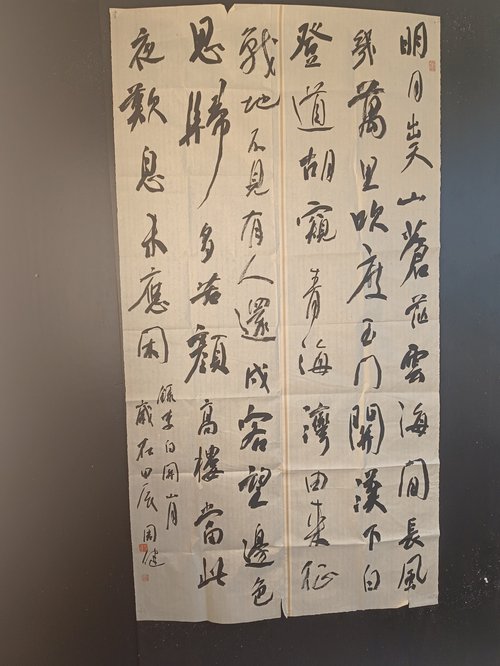 明月出天山蒼茫雲海間長風
幾萬里吹度玉門關漢下白
登道胡窺青海灣由來征
戰地不見有人還戍客望邊色
思歸多苦顏高樓當此
夜歎息未應閑
錄李白關山月
歲在甲辰 周健